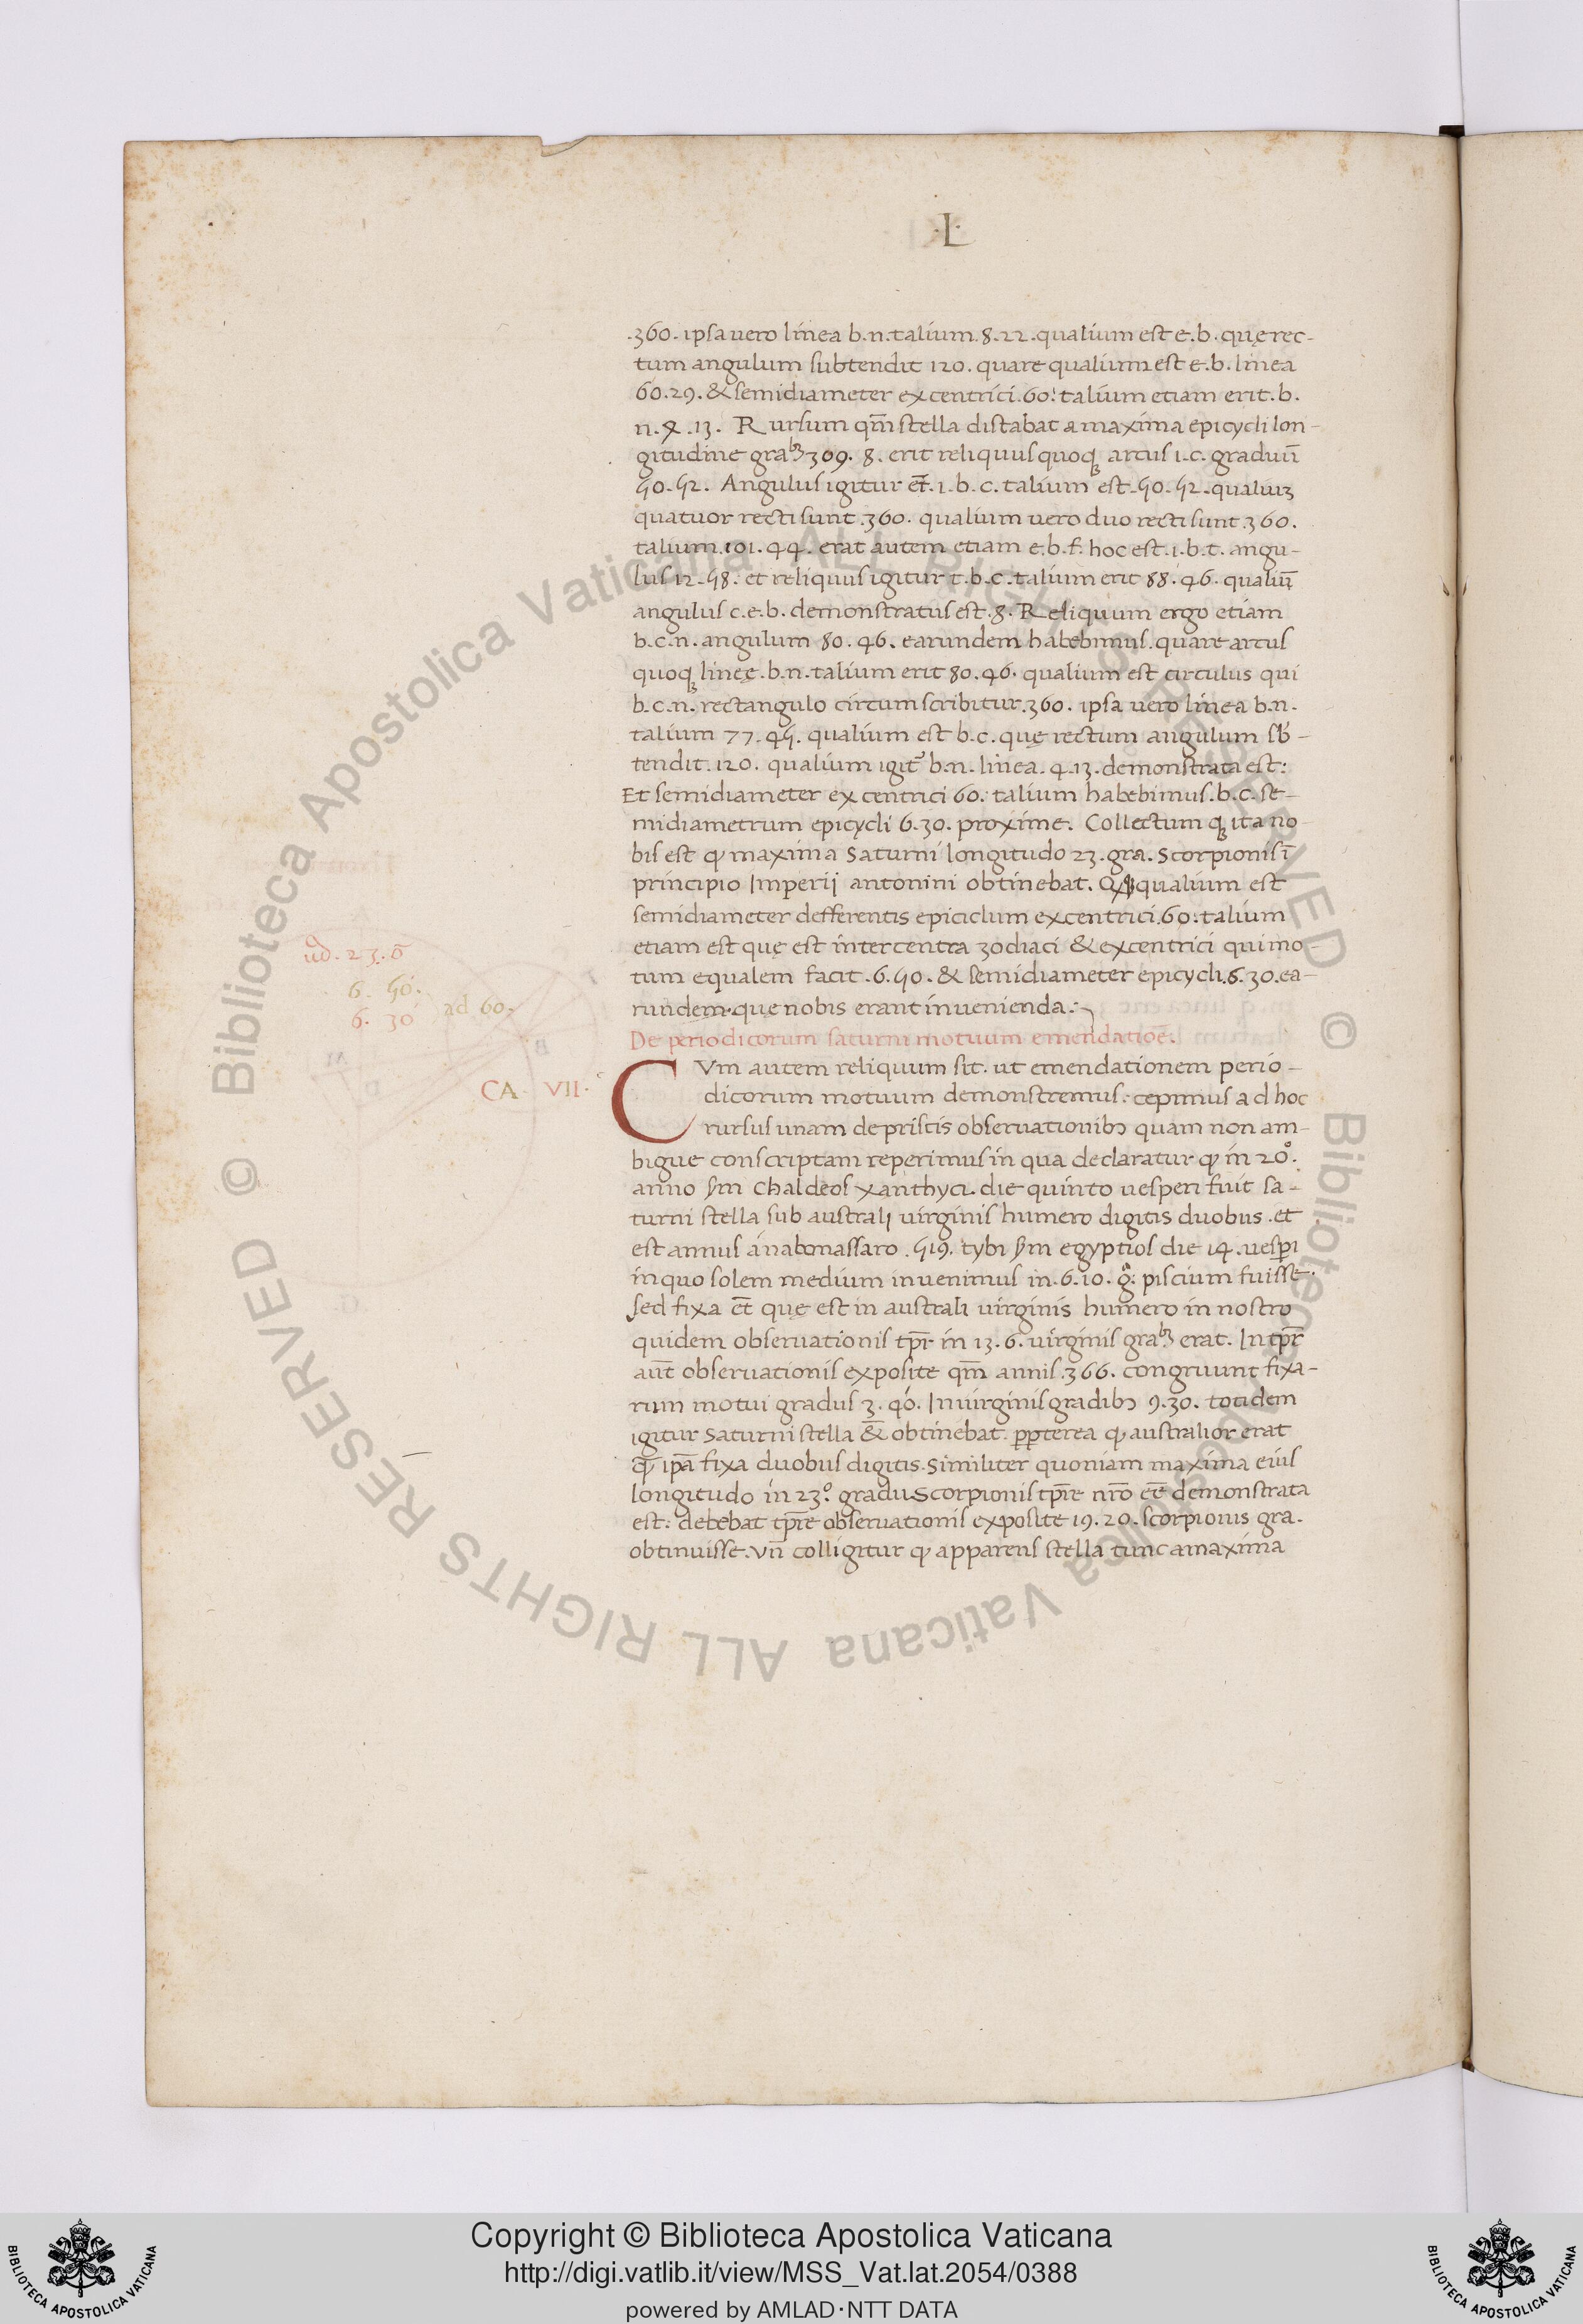 ·L·
.360. ipsa uero linea b.n. talium. 8.22. qualium est e.b. quę rec-
tum angulum subtendit 120. quare qualium est e.b. linea
60.29. & semidiameter excentrici .60: talium etiam erit .b.
n. 4 .13. Rursum qm̄ stella distabat a maxima epicycli lon-
gitudine grabꝫ 309. 8. erit reliquus quoqꝫ arcus i.c. graduū
50.52. Angulus igitur et̄. i.b.c. talium est .50.52. qualiuꝫ
quatuor recti sunt .360. qualium uero duo recti sunt .360.
talium .101.44. erat autem etiam e.b.f. hoc est .i.b.t. angu-
lus 12.58. et reliquus igitur t.b.c. talium erit 88.46. qualiuꝫ
angulus c.e.b. demonstratus est .8. Reliquum ergo etiam
b.c.n. angulum 80.46. earundem habebimus. quare arcus
quoqꝫ lineę .b.n. talium erit 80.46. qualium est circulus qui
b.c.n. rectangulo circumscribitur .360. ipsa uero linea b.n.
talium 77.45. qualium est b.c. quę rectum angulum sb̄-
tendit .120. qualium igit̄ b.n. linea .4.13. demonstrata est:
Et semidiameter excentrici 60. talium habebimus .b.c. se-
midiametrum epicycli 6.30. proxime. Collectum qꝫ ita no
bis est ꝙ maxima Saturni longitudo 23. gra. Scorpionis ī
principio Imperij antonini obtinebat. qualium est
semidiameter defferentis epiciclum excentrici .60: talium
etiam est quę est inter centra zodiaci & excentrici qui mo-
tum equalem facit .6.50. & semidiameter epicycli .6.30. ea-
rundem. quę nobis erant inuenienda:
ad 60.
6. 50.
6. 30
De periodicorum saturni motuum emendatioē.
CA. VII.
CVm autem reliquum sit. ut emendationem perio-
dicorum motuum demonstremus: cepimus ad hoc
rursus unam de priscis obseruationibꝰ quam non am-
bigue conscriptam reperimus in qua declaratur ꝙ in 20°.
anno s̄m Chaldeos xanthyci. die quinto uesperi fuit sa-
turni stella sub australi uirginis humero digitis duobus. et
est annus a nabonassaro .519. tybi s̄m egyptios die 14. uesp̄i
in quo solem medium inuenimus in .6.10. g̊: piscium fuisse.
Sed fixa et̄ quę est in australi uirginis humero in nostro
quidem obseruationis tp̄r in 13.6. uirginis grabꝫ erat. In tp̄r
aut̄ obseruationis exposite qm̄ annis .366. congruunt fixa-
rum motui gradus 3.40. In uirginis gradibꝰ 9.30. totidem
igitur Saturni stella & obtinebat. ꝓpterea ꝙ australior erat
q̄ ip̄a fixa duobus digitis. Similiter quoniam maxima eius
longitudo in 23°. gradu Scorpionis tp̄re nr̄o eē demonstrata
est: debebat tp̄re obseruationis exposite 19.20. scorpionis gra.
obtinuisse. Vn̄ colligitur ꝙ apparens stella tunc a maxima
© Biblioteca Apostolica Vaticana ALL RIGHTS RESERVED © Biblioteca Apostolica Vaticana ALL RIGHTS RESERVED
Copyright © Biblioteca Apostolica Vaticana
http://digi.vatlib.it/view/MSS_Vat.lat.2054/0388
powered by AMLAD·NTT DATA
BIBLIOTECA APOSTOLICA VATICANA
BIBLIOTECA APOSTOLICA VATICANA